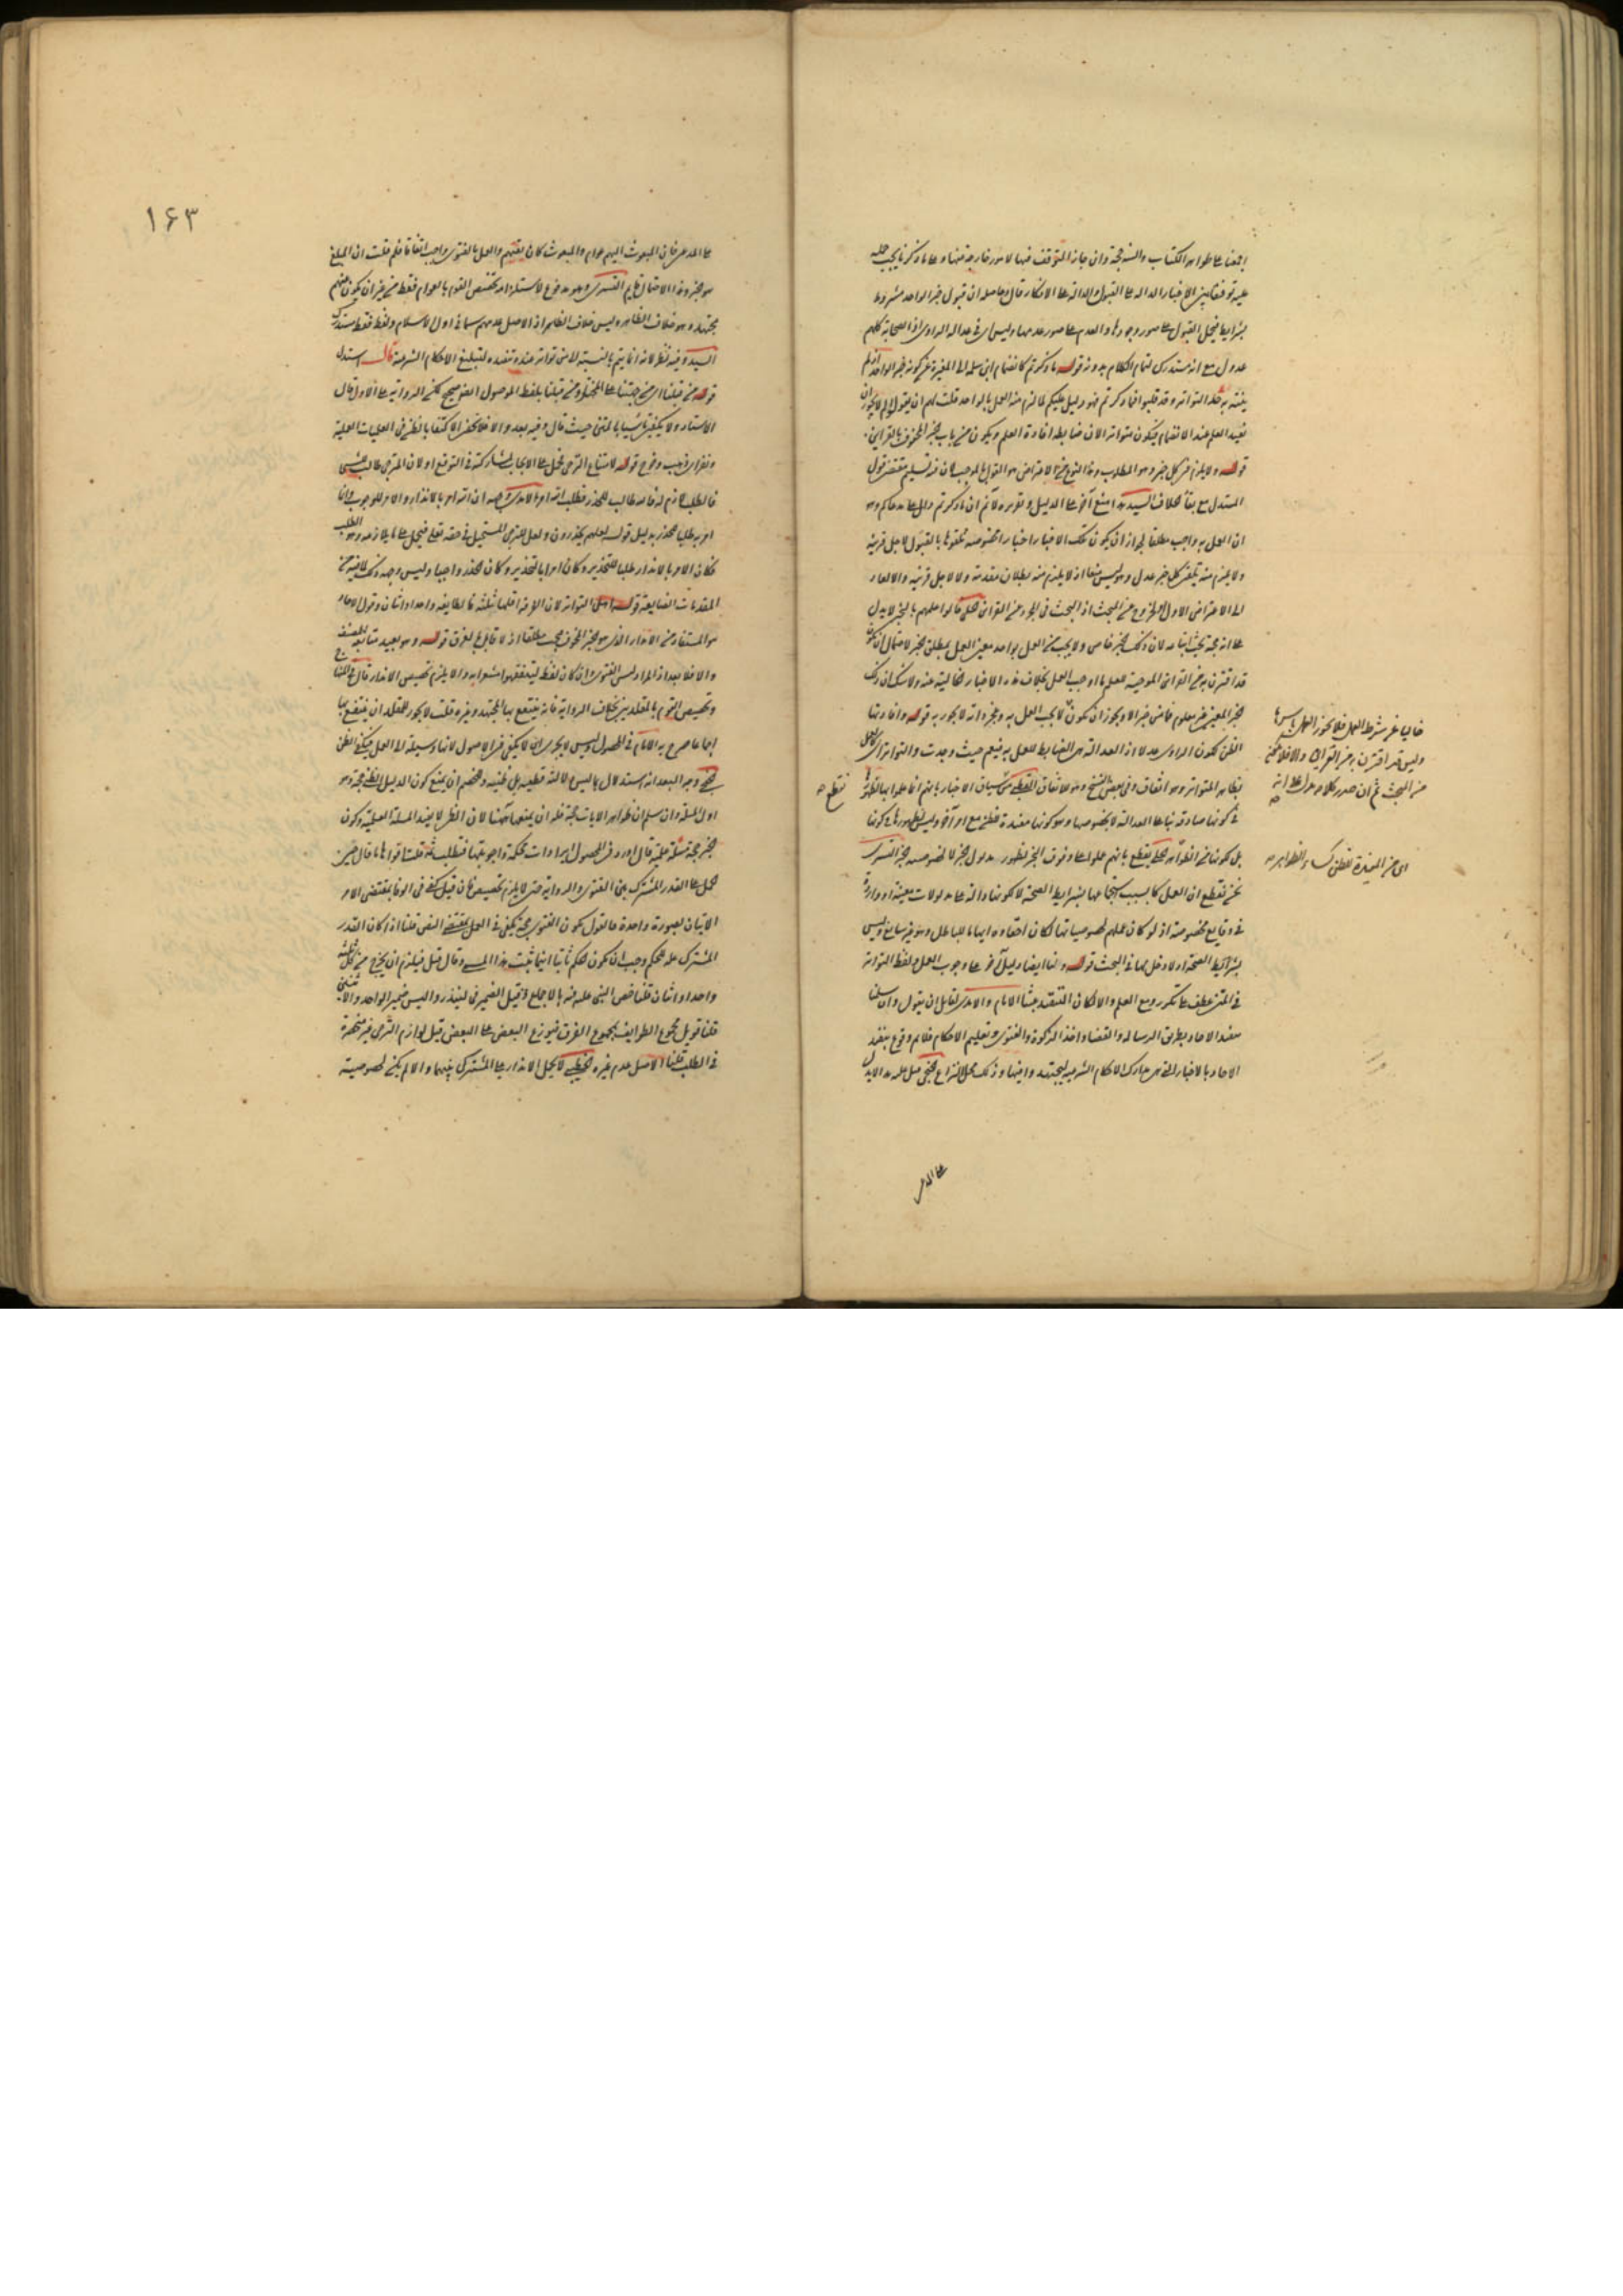 اجمعنا على ظواهر الكتاب والسنة حجة وان جاز التوقف فيها لامور خارجة عنها وعلى ما ذكرنا يجب حمله
عليه توفيقا بين الاخبار الدالة على القبول والدالة على الانكار قال وحاصله ان قبول خبر الواحد مشروط
بشرايط فيحمل القبول على صور وجودها والعدم على صور عدمها وليس اى فى عدالة الراوى اذ الصحابة كلهم
عدول مع انه مستدرك لتمام الكلام بدونه قوله ما ذكرتم كانضمام ابن سلمة الى المغيرة عن كونه خبر الواحد اذ لم
ينته به حد التواتر وقد قبلوا فما ذكرتم فهو دليل عليكم لما لزم منه العمل بالواحد قلت لهم ان يقول لم لا يجوز ان
يفيد العلم عند الانضمام فيكون متواترا لان ضابطه افادة العلم ويكون من باب خبر المحفوف بالقراين
قوله ولا يلزم فى كل خبر وهو المطلوب وهذا النوع من الاعتراض هو القول بالموجب لان فيه تسليم مقتضى قول
المستدل مع بقاء الخلاف السيد هذا منع آخر على الدليل وتقريره لا نم ان ما ذكرتم دال على مدعاكم وهو
ان العمل به واجب مطلقا لجواز ان يكون تلك الاخبار اخبارا مخصوصة تلقوها بالقبول لاجل قرينة
ولا يلزم منه تلقى كل خبر عدل وهو ليس منعا اذ لا يلزم منه بطلان مقدمة ولا لاجل قرينة والا لعاد
الى الاعتراض الاول ولخروج عن المبحث اذ البحث فى المجرد عن القراين الحلى قالوا عملهم بالخبر لا يدل
على انه حجة يجب اتباعه لان ذلك خبر خاص ولا يجب من العمل بواحد معين العمل بمطلق الخبر لاحتمال ان يكون
قد اقترن به من القراين الموجبة للعلم ما اوجب العمل بخلاف هذه الاخبار الخالية عنه ولا شك ان ذلك
خبر المعين غير معلوم فاى خبر الا ويجوز ان يكون لا يجب العمل به وخبر انه لا يجوز به قوله وافادتها
الظن لكون الراوى عدلا اذ العدالة هى الضابط للعمل به فيعم حيث وجدت والتواتر اى كالعمل
بظاهر المتواتر وهو اتفاق وفى بعض النسخ وهو لاتفاق القطبى من سياق الاخبار بانهم انما عملوا بها لظهورها
فى كونها صادقة بناء على العدالة لا بخصوصها وهو كونها مفيدة للظن مع امر آخر وليس لظهورها فى كونها
بل كونها من الظواهر الحلى نقطع بانهم عملوا على وفق الخبر لظهور مدلول الخبر لا لخصوصية خبر التسترى
نحن نقطع ان العمل كان بسبب استجماعها بشرايط الصحة لا لكونها دالة على مدلولات معينة او واردة
فى وقايع مخصوصة اذ لو كان عملهم لخصوصياتها لكان اخفاءه ايهاما للباطل وهو غير سايغ وليس
بشرايط الصحة ولا دخل لها فى البحث قوله ولنا ايضا دليل آخر على وجوب العمل ولفظ التواتر
فى المتن عطف على تكرر ومع العلم والا لكان التنفيذ عبثا الامام والآمدى لقايل ان يقول وان سلمنا
تنفيذ الاحاد بطريق الرسالة والقضاء واخذ الزكوة والفتوى وتعليم الاحكام فلا نم وقوع تنفيذ
الاحاد بالاخبار التى هى مدارك الاحكام الشرعية ليجتهد وافيها وذلك محل النزاع الخنجى مثل هذا لا يدل
على المدعى
خاليا عن شرط العمل فلا يجوز العمل به
وليس قد اقترن به من القراين والا فلا يخفى
من البحث ثم ان صدر كلامه يدل على انه
اى من المفيدة للظن كسائر الظواهر صح
نقطع صح
١٦٣
على المدعى فان المبعوث اليهم عوام والمبعوث كان يفتيهم والعمل بالفتوى واجب اتفاقا فلم قلت ان المبلغ
هو خبر وهذا الاحتمال قايم التسترى وهو مدفوع لاستلزامه تخصيص القوم بالعوام فقط من غير ان يكون فيهم
مجتهد وهو خلاف الظاهر وليس خلاف الظاهر اذ الاصل عدمهم سيما فى اول الاسلام ولفظ فقط مستدرك
السيد وفيه نظر لانه انما يتم بالنسبة لا من تواتر عنده تنفيذه لتبليغ الاحكام الشرعية قال استدل
قوله من قبلنا اى من جهتنا على المختار ومن قبلنا بلفظ الموصول الغير صحيح لكن الرواية على الاول قال
الاستاد ولا يكفى تاسيا بالمتن حيث قال وفيه بعد والا فلا يخفى الاكتفاء بالظن فى العمليات العملية
ونفر اى ذهب وخرج قوله لامتناع الترجى فحمل على الايجاب لمشاركته فى التوقع او لان المترجى طالب لشىء
فالطلب لازم له فانه طالب للحذر فطلب الله امر الآمدى وجهه ان الله امر بالانذار والامر للوجوب وانما
امر به طلبا للحذر بدليل قوله لعلهم يحذرون ولعل للترجى المستحيل فى حقه تعالى فيحمل على ما يلازمه وهو الطلب
فكان الامر بالانذار طلبا للتحذير وكان امرا بالتحذير وكان الحذر واجبا وليس وجهه ذلك لما فيه من
المقدمات الضايعة قوله اصل التواتر لان الفرقة اقلها ثلثة فالطايفة واحد او اثنان وقول الآحاد
هو المستفاد من الانذار الذى هو الخبر المخوف يجب مطلقا اذ لا قايل بالفرق قوله وهو بعيد متابعة للمصنف
والا فلا بعد اذ المراد ليس الفتوى وان كان لفظ ليتفقهوا مشعرا به والا يلزم تخصيص الانذار قال فى المنتها
وتخصيص القوم بالمقلدين بخلاف الرواية فانه ينتفع بها المجتهد وغيره قلت لا يجوز للمقلد ان ينتفع بها
اجماعا صرح به الامام فى المحصول وليس لا يجرى اى لا يكفى فى الاصول لانها وسيلة الى العمل فيكفى الظن
الخنجى وجه البعد انه استدلال بما ليس دلالته قطعية بل ظنية وللخصم ان يمنع كون الدليل الظنى حجة وهو
اول المسئلة وان سلم ان ظواهر الايات حجة فله ان يمنعها ههنا لان الظن لا يفيد المسئلة العلمية وكون
خبر حجة مسئلة علمية قال اورد فى المحصول ايرادات محكمة واجوبتها فنطلب ثمة قلت اقواها ما قال حين
حمل على القدر المشترك بين الفتوى والرواية حتى لا يلزم تخصيص فان قيل كفى فى الوفا بمقتضى الامر
الاتيان بصورة واحدة فالقول بكون الفتوى حجة يكفى فى العمل بمقتضى النص قلنا اذا كان القدر
المشترك علة للحكم وجب ان يكون الحكم ثابتا اينما ثبت هذا المسمى وقال قيل فيلزم ان يخرج من كل ثلثة
واحد او اثنان قلنا خص النبى عليه فيه بالاجماع وقيل الضمير فى لينذروا ليس ضمير الواحد والاثنين
قلنا قوبل مجموع الطوايف بمجموع الفرق فيوزع البعض على البعض قيل لوازم الترجى غير منحصرة
فى الطلب قلنا الاصل عدم غيره الخطيبى لا يحمل الانذار على المشترك بينهما والا لم يكن لخصوصية